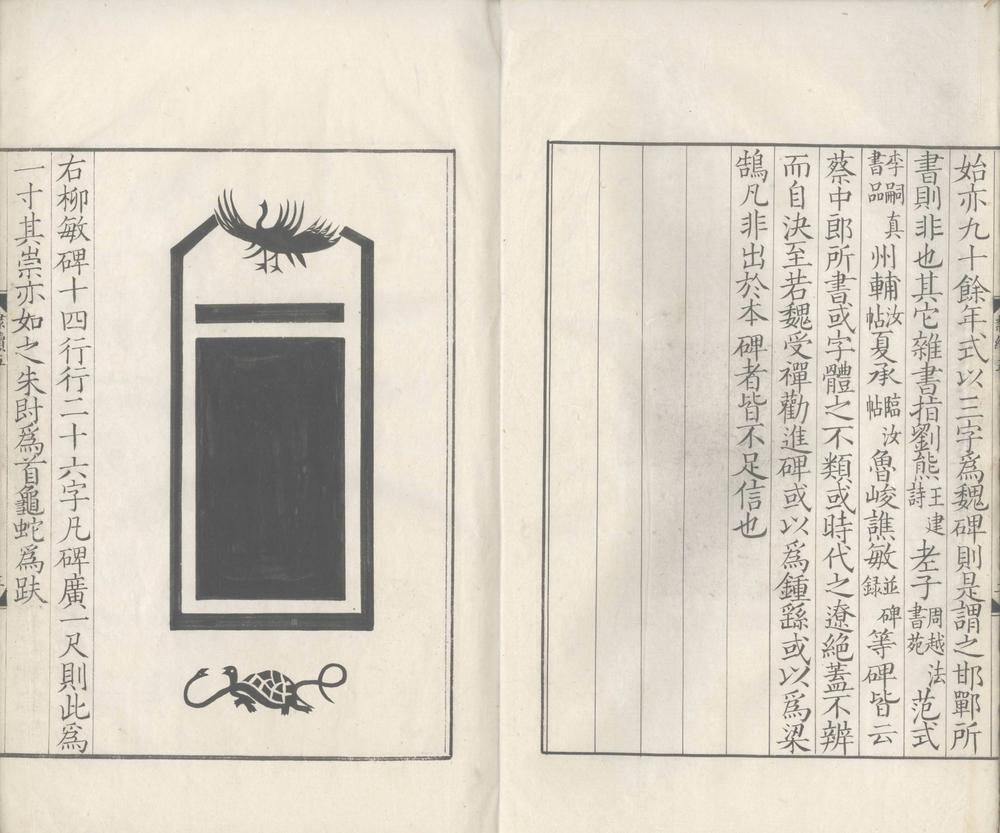 始亦九十餘年式以三字爲魏碑則是謂之邯鄲所
書則非也其它雜書指劉熊王建詩老子周越法書苑范式
李嗣真書品州輔汝帖夏承臨汝帖魯峻譙敏並碑録等碑皆云
蔡中郎所書或字體之不類或時代之遼絕蓋不辨
而自決至若魏受禪勸進碑或以爲鍾繇或以爲梁
鵠凡非出於本碑者皆不足信也
右柳敏碑十四行行二十六字凡碑廣一尺則此爲
一寸其崇亦如之朱爲首龜蛇爲趺